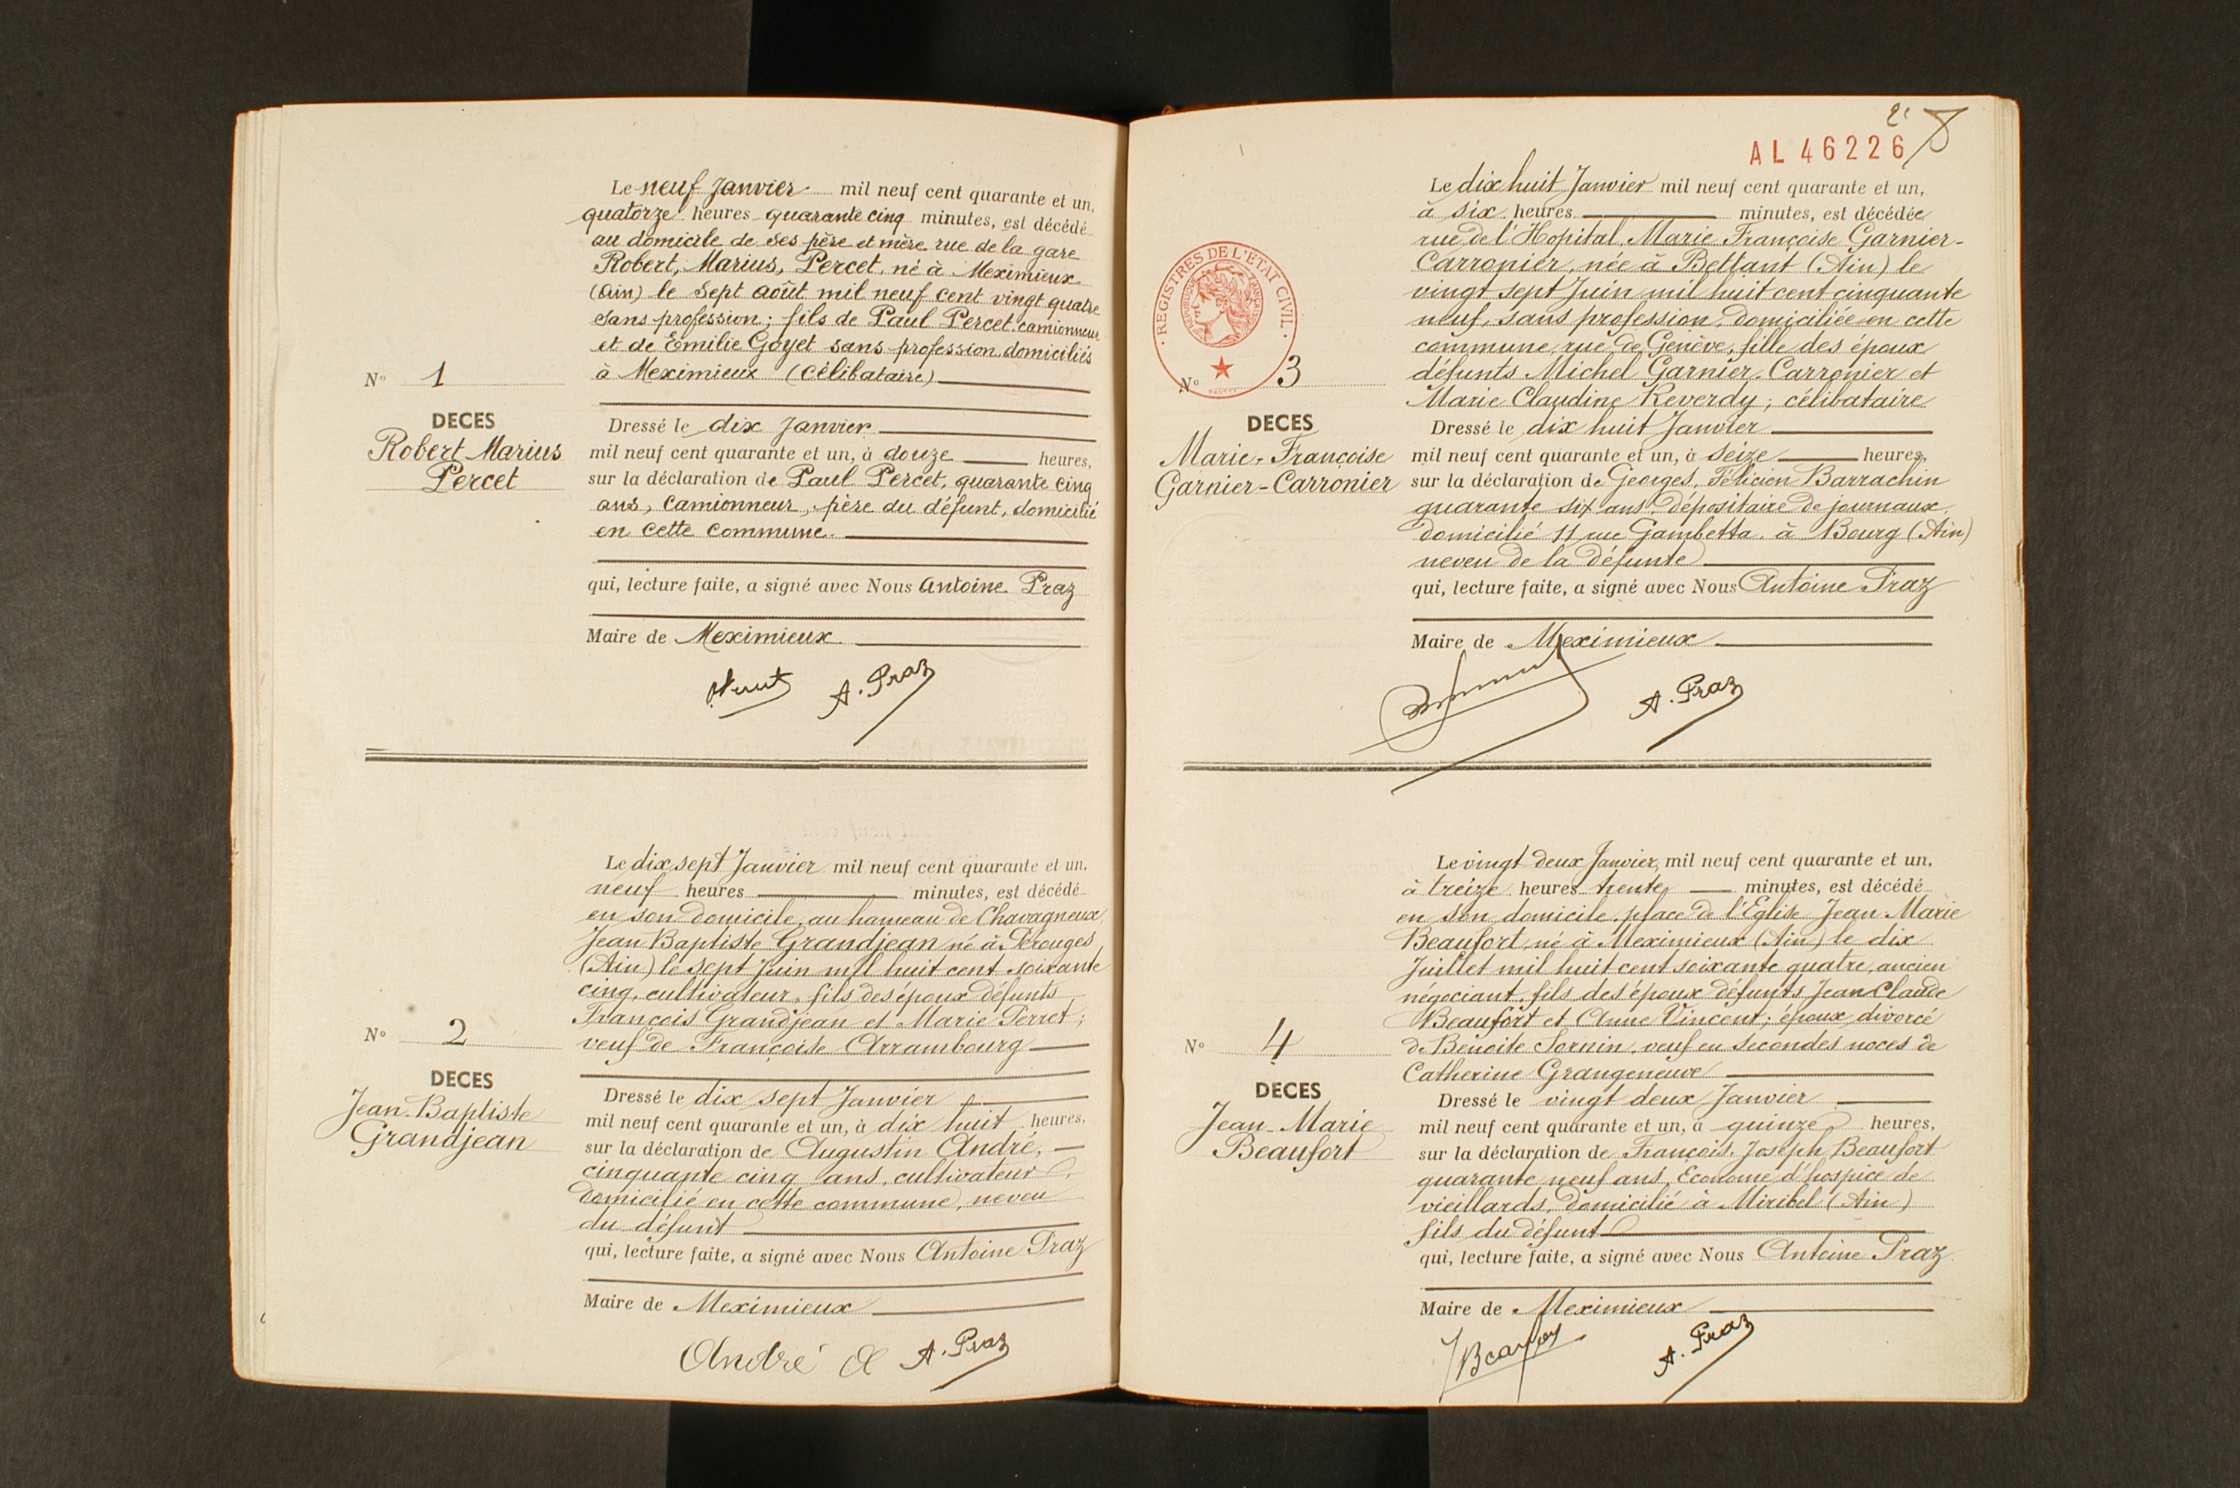 Le neuf Janvier mil neuf cent quarante et un,
quatorze heures quarante cinq minutes, est décédé
au domicile de ses père et mère rue de la gare
Robert, Marius, Percet, né à Meximieux
(Ain) le sept août mil neuf cent vingt quatre
sans profession; fils de Paul Percet camionneur
et de Emilie Goyet sans profession domiciliés
à Meximieux (célibataire)
N° 1
DECES
Robert Marius
Percet
Dressé le dix Janvier
mil neuf cent quarante et un, à douze heures,
sur la déclaration de Paul Percet, quarante cinq
ans, camionneur, père du défunt, domicilié
en cette commune.
qui, lecture faite, a signé avec Nous Antoine Praz
Maire de Meximieux
A. Praz
Le dix sept Janvier mil neuf cent quarante et un.
neuf heures minutes, est décédé
en son domicile, au hameau de Chavagneux
Jean Baptiste Grandjean né à Pérouges
(Ain) le sept Juin mil huit cent soixante
cinq, cultivateur, fils des époux défunts
François Grandjean et Marie Perret;
veuf de Françoise Arrambourg
N° 2
DECES
Jean-Baptiste
Grandjean
Dressé le dix sept Janvier
mil neuf cent quarante et un, à dix huit heures,
sur la déclaration de Augustin André,
cinquante cinq ans, cultivateur,
domicilié en cette commune, neveu
du défunt
qui, lecture faite, a signé avec Nous Antoine Praz
Maire de Meximieux
André A. Praz
2
8
AL 46226
Le dix huit Janvier mil neuf cent quarante et un,
à six heures minutes, est décédée
rue de l'Hopital, Marie Françoise Garnier-
Carronier, née à Bettant (Ain) le
vingt sept Juin mil huit cent cinquante
neuf, sans profession, domiciliée en cette
commune, rue de Genève, fille des époux
défunts Michel Garnier-Carronier et
Marie Claudine Reverdy; célibataire
REGISTRES DE L'ETAT CIVIL
N° 3
DECES
Marie-Françoise
Garnier-Carronier
Dressé le dix huit Janvier
mil neuf cent quarante et un, à seize heures,
sur la déclaration de Georges, Félicien Barrachin
quarante six ans, dépositaire de journaux,
domicilié 11 rue Gambetta à Bourg (Ain)
neveu de la défunte
qui, lecture faite, a signé avec Nous Antoine Praz
Maire de Meximieux
A. Praz
Le vingt deux Janvier, mil neuf cent quarante et un,
à treize heures trente minutes, est décédé
en son domicile place de l'Eglise Jean Marie
Beaufort, né à Meximieux (Ain) le dix
Juillet mil huit cent soixante quatre, ancien
négociant, fils des époux défunts Jean Claude
Beaufort et Anne Vincent; époux divorcé
de Benoite Sornin, veuf en secondes noces de
Catherine Grangeneuve
N° 4
DECES
Jean-Marie
Beaufort
Dressé le vingt deux Janvier
mil neuf cent quarante et un, à quinze heures,
sur la déclaration de François, Joseph Beaufort
quarante neuf ans, Econome d'hospice de
vieillards, domicilié à Miribel (Ain)
fils du défunt
qui, lecture faite, a signé avec Nous Antoine Praz
Maire de Meximieux
A. Praz